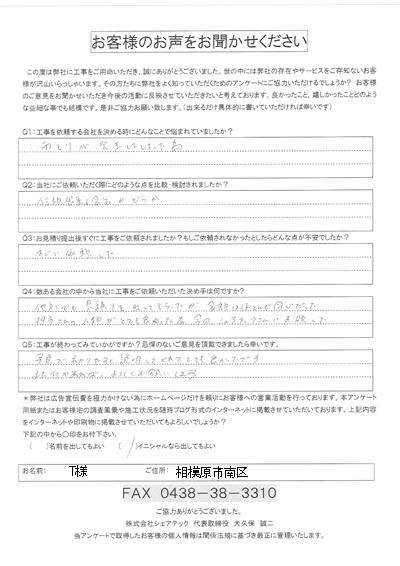 お客様のお声をお聞かせください
この度は弊社に工事をご用命いただき、誠にありがとうございました。世の中には弊社の存在やサービスをご存知ないお客
様が沢山いらっしゃいます。その方たちに弊社をよく知っていただくためのアンケートにご協力いただけるでしょうか? お客様
のご意見をお聞かせいただき今後の活動に反映させていただきたいと考えております。良かったこと、嬉しかったことどのよう
な些細な事でも結構です。是非ご協力お願い致します。(出来るだけ具体的に書いていただければ幸いです)
Q1:工事を依頼する会社を決める時にどんなことで悩まれていましたか?
雨もりが発生してしまった為
Q2:当社にご依頼いただく際にどのような点を比較・検討されましたか?
信頼出来る会社かどうか
Q3:お見積り提出後すぐに工事をご依頼されましたか?もしご依頼されなかったとしたらどんな点が不安でしたか?
すぐに依頼した
Q4:数ある会社の中から当社に工事をご依頼いただいた決め手は何ですか?
他社でも見積りを出してもらったが、金額はほとんど同じだった
担当さんの人柄がとても良かった為、今回シェアテックさんにお願いした
Q5:工事が終わってみていかがですか?忌憚のないご意見を頂戴できましたら幸いです。
写真でわかりやすく説明してくれてとても良かったです
また何かあれば、よろしくお願いします
*弊社は広告宣伝費を極力かけない為にホームページだけを頼りにお客様への営業活動を行っております。本アンケート
用紙またはお客様宅の調査風景や施工状況を随時ブログ形式のインターネットに掲載させていただいております。上記内容
をインターネットや印刷物に掲載させていただいてもよろしいでしょうか?
下記の中から〇印をお付け下さい。
( )名前を出してもよい (〇)イニシャルなら出してもよい
お名前: T様 ご住所: 相模原市南区
FAX 0438-38-3310
ご協力ありがとうございました。
株式会社シェアテック 代表取締役 大久保 誠二
当アンケートで取得したお客様の個人情報は関係法規に基づき厳正に管理いたします。